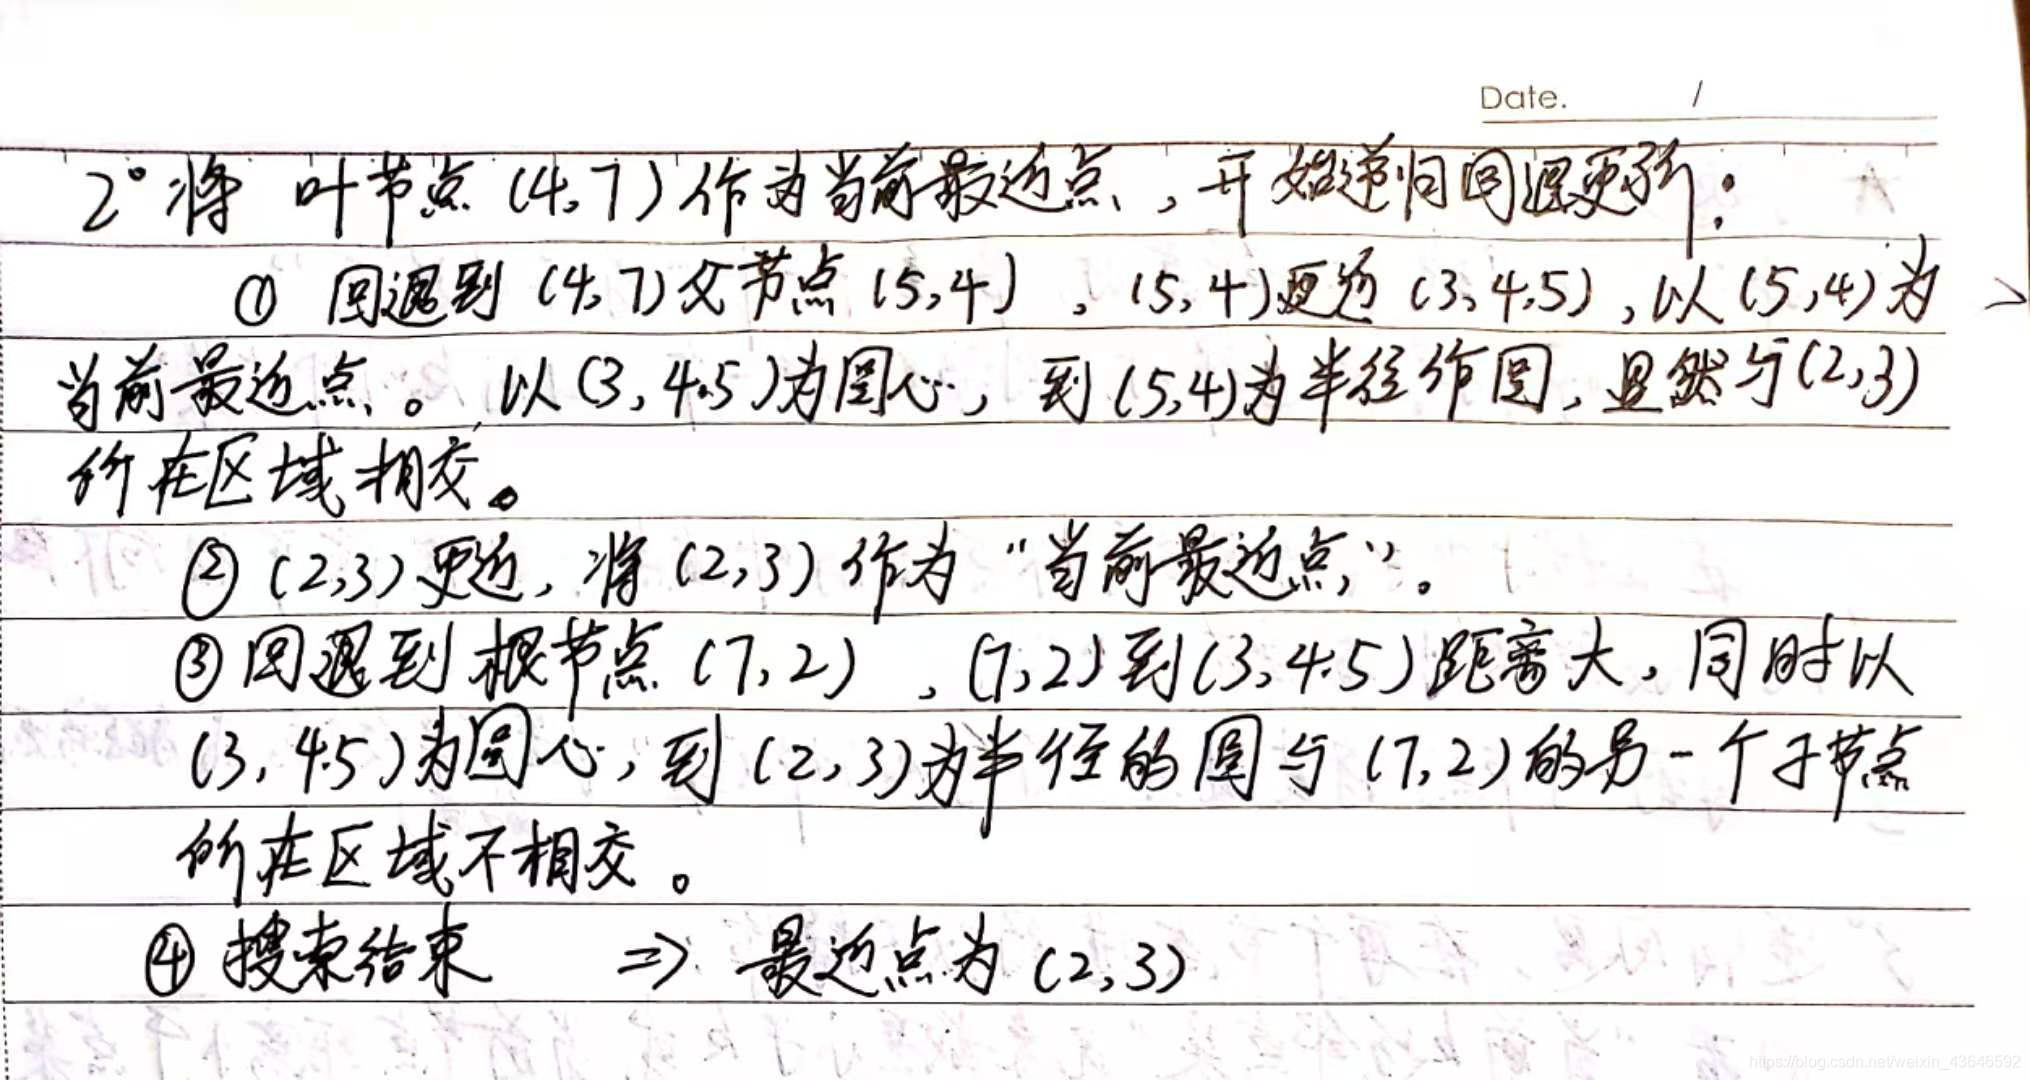 Date. /
2° 将 叶节点 (4,7) 作为当前最近点，开始递归回退更新：
① 回退到 (4,7) 父节点 (5,4) ，(5,4)更近 (3,4.5) ，以 (5,4) 为
当前最近点。以 (3, 4.5) 为圆心，到 (5,4) 为半径作圆，显然与(2,3)
所在区域相交。
② (2,3) 更近，将 (2,3) 作为 "当前最近点"。
③ 回退到 根节点 (7,2) ，(7,2) 到 (3,4.5) 距离大，同时以
(3, 4.5) 为圆心，到 (2,3) 为半径的圆与 (7,2) 的另一个子节点
所在区域不相交。
④ 搜索结束 => 最近点为 (2,3)
https://blog.csdn.net/weixin_43646592